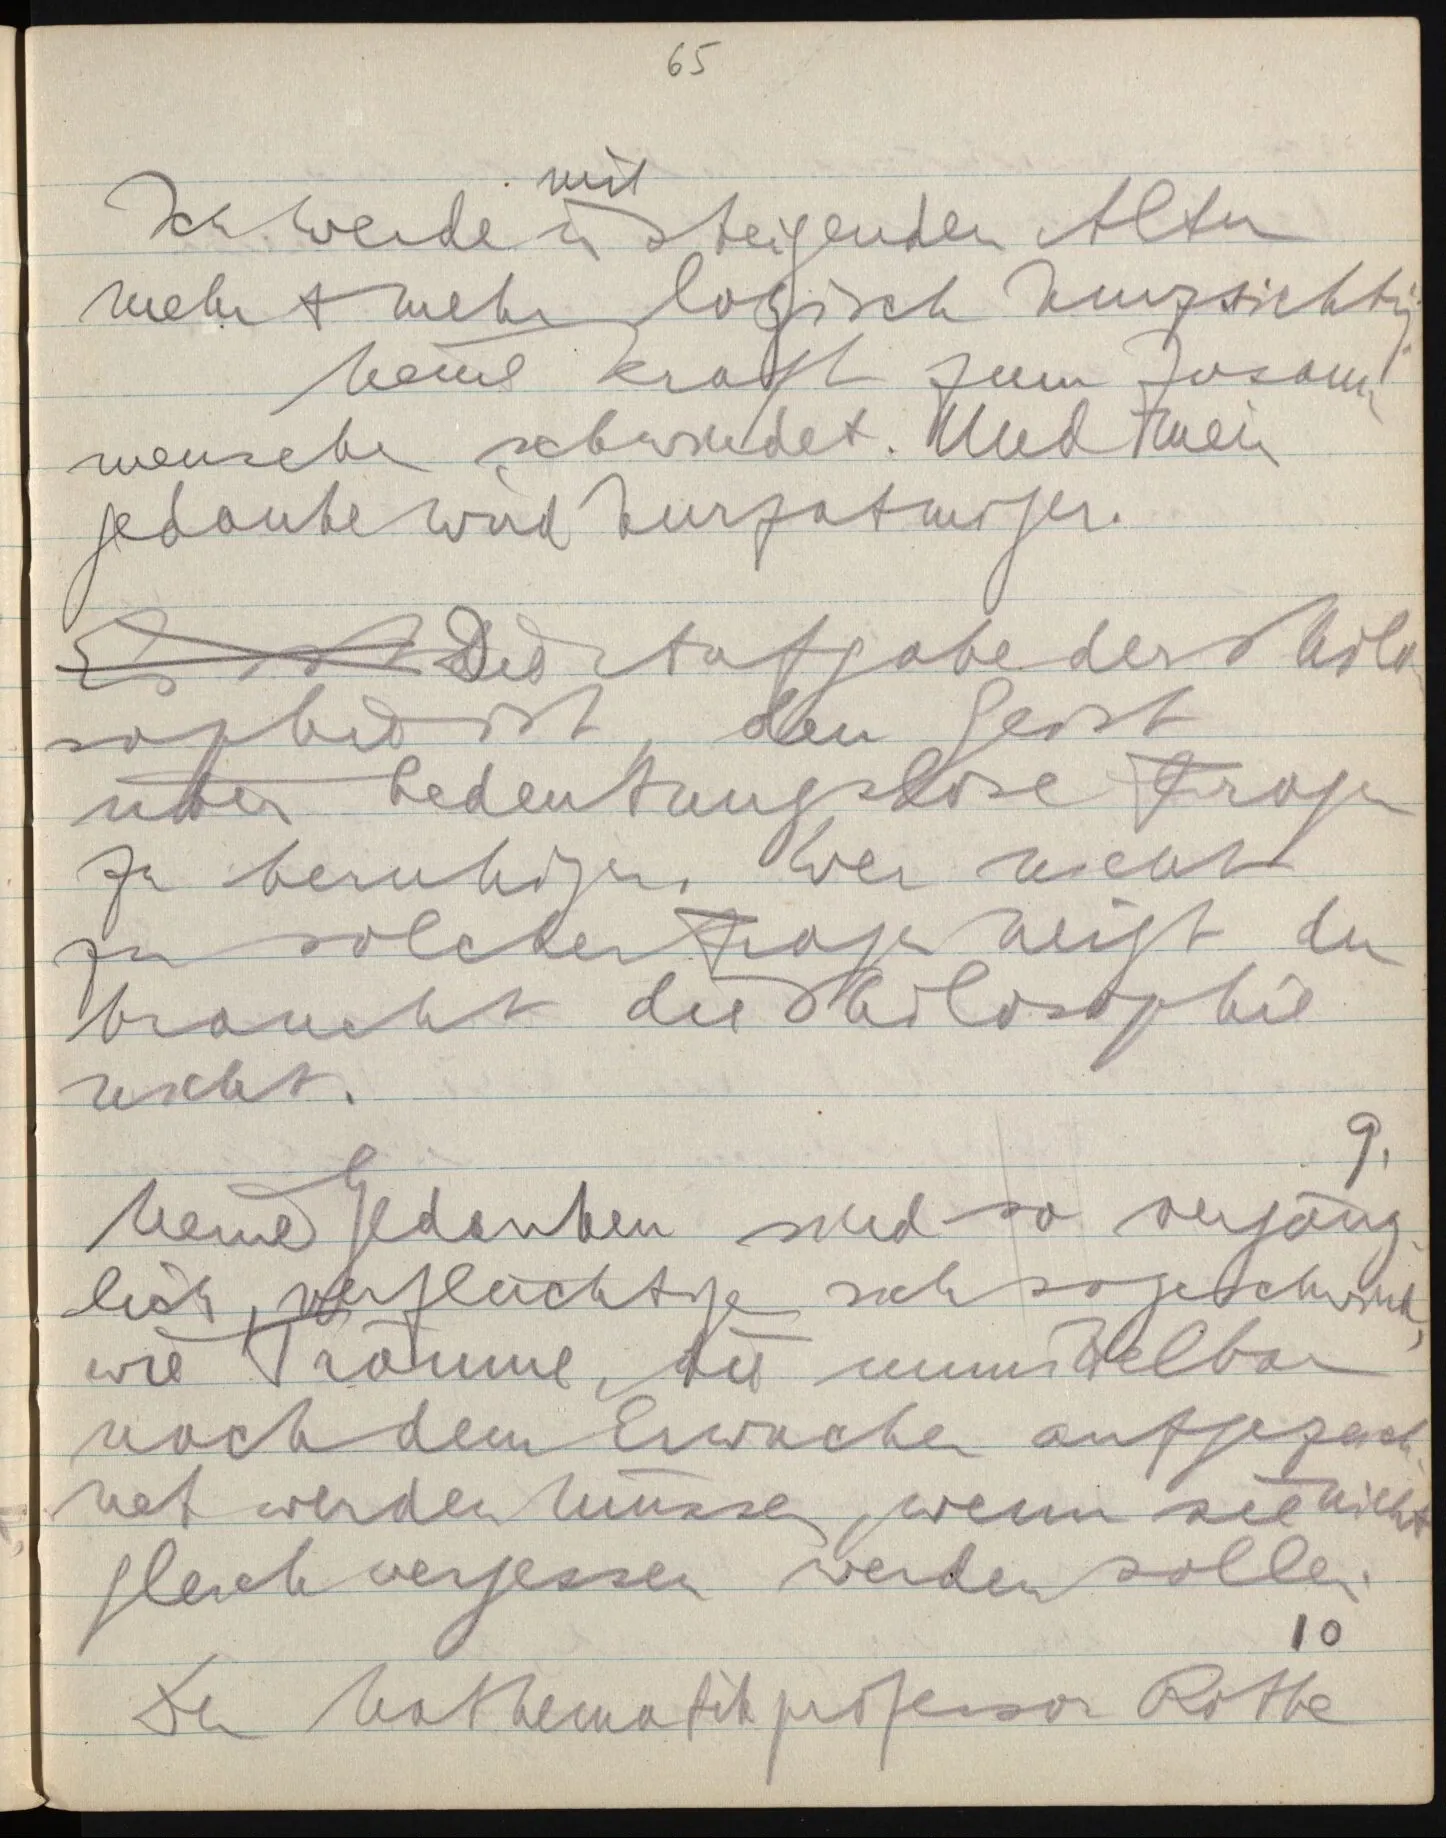 65
mit
Ich werde in steigenden Alter
mehr + mehr logisch kurzsichtig.
Meine Kraft zum Zusam-
mensehen schwindet. Und mein
Gedanke wird kurzatmiger.
Es ist Die Aufgabe der Philo-
sophie ist, den Geist
über bedeutungslose Fragen
zu beruhigen. Wer nicht
zu solchen Fragen neigt der
braucht die Philosophie
nicht.
9.
Meine Gedanken sind so vergäng-
lich, verflüchtigen sich so geschwind,
wie Träume, die unmittelbar
nach dem Erwachen aufgezeich-
net werden müssen, wenn sie nicht
gleich vergessen werden sollen.
10
Der Mathematikprofessor Rothe